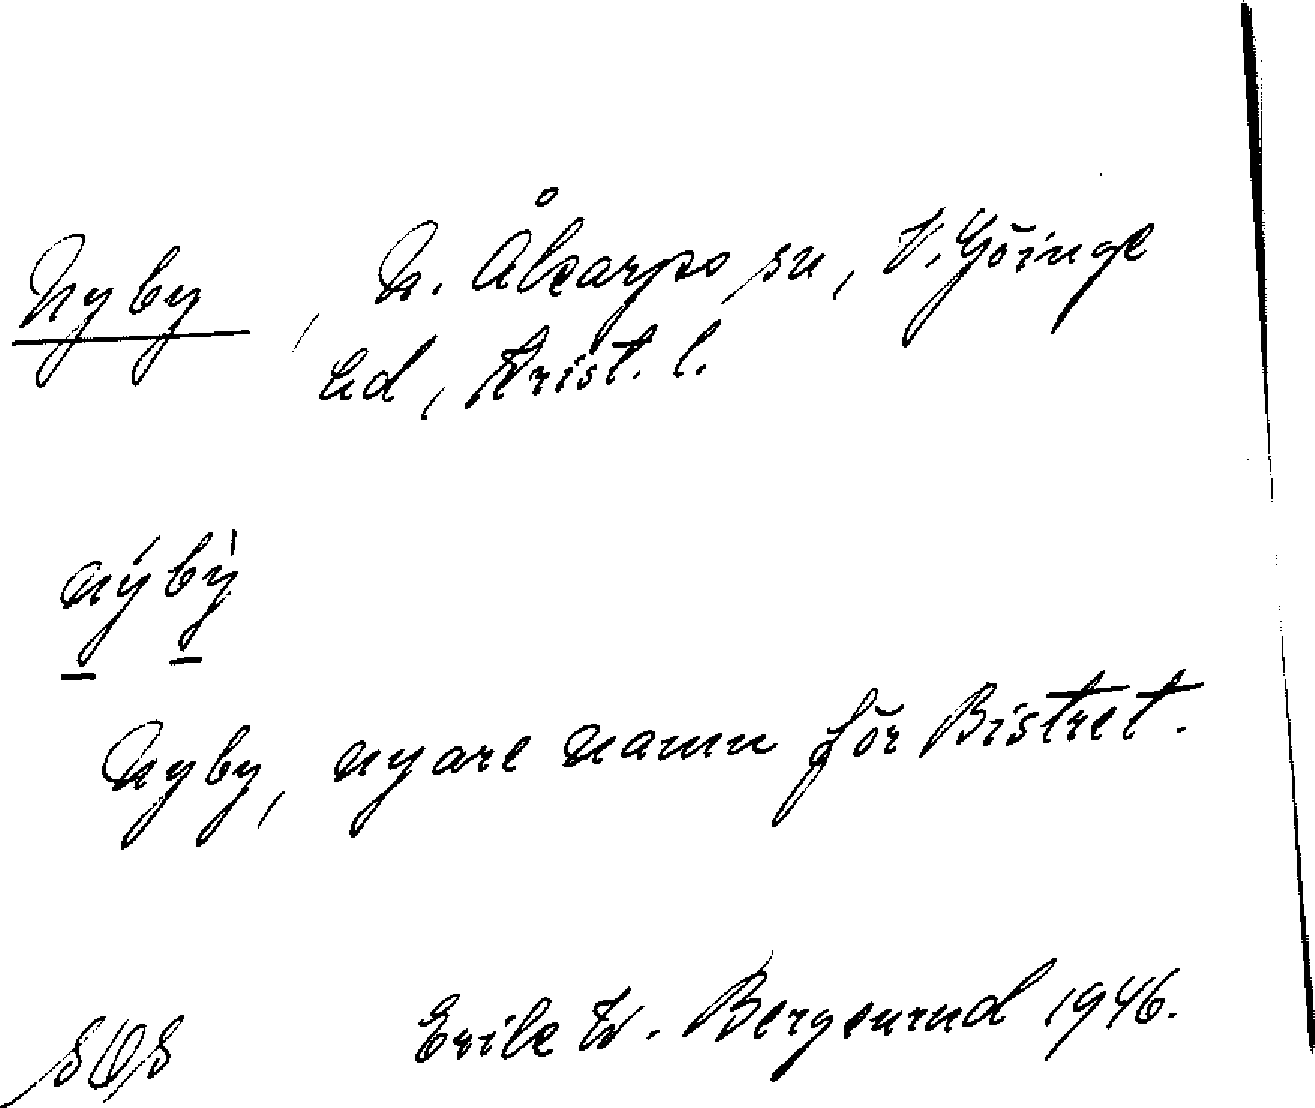 Nyby, N. Åkarps sn, V. Göinge
hd, Krist. l.
nýbỳ
Nyby, nyare namn för Bistret.
Erik W. Bergstrand 1946.